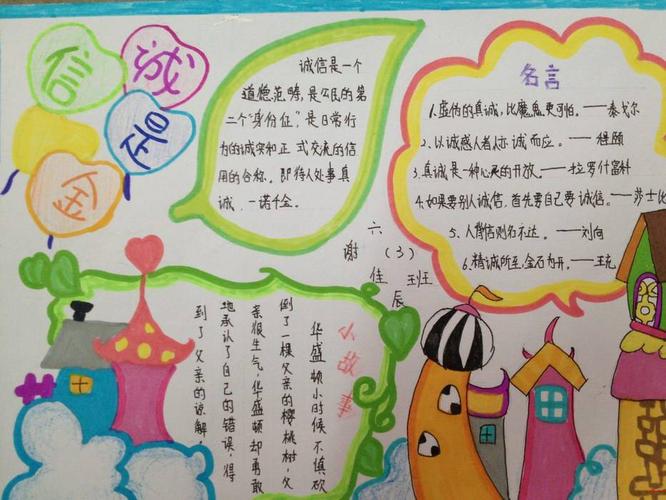 诚信是金
诚信是一个
道德范畴,是公民的第
二个“身份证”,是日常行
为的诚实和正式交流的信
用的合称。即待人处事真
诚、一诺千金。
名言
1.虚伪的真诚,比魔鬼更可怕。——泰戈尔
2.以诚感人者人亦诚而应。——程颐
3.真诚是一种心灵的开放。——拉罗什富科
4.如果要别人诚信,首先要自己要诚信。——莎士比
5.人背信则名不达。——刘向
6.精诚所至,金石为开。——王充
六(3)班
谢佳辰
小故事
华盛顿小时候不慎砍
倒了一棵父亲的樱桃树,父
亲很生气,华盛顿却勇敢
地承认了自己的错误,得
到了父亲的谅解。